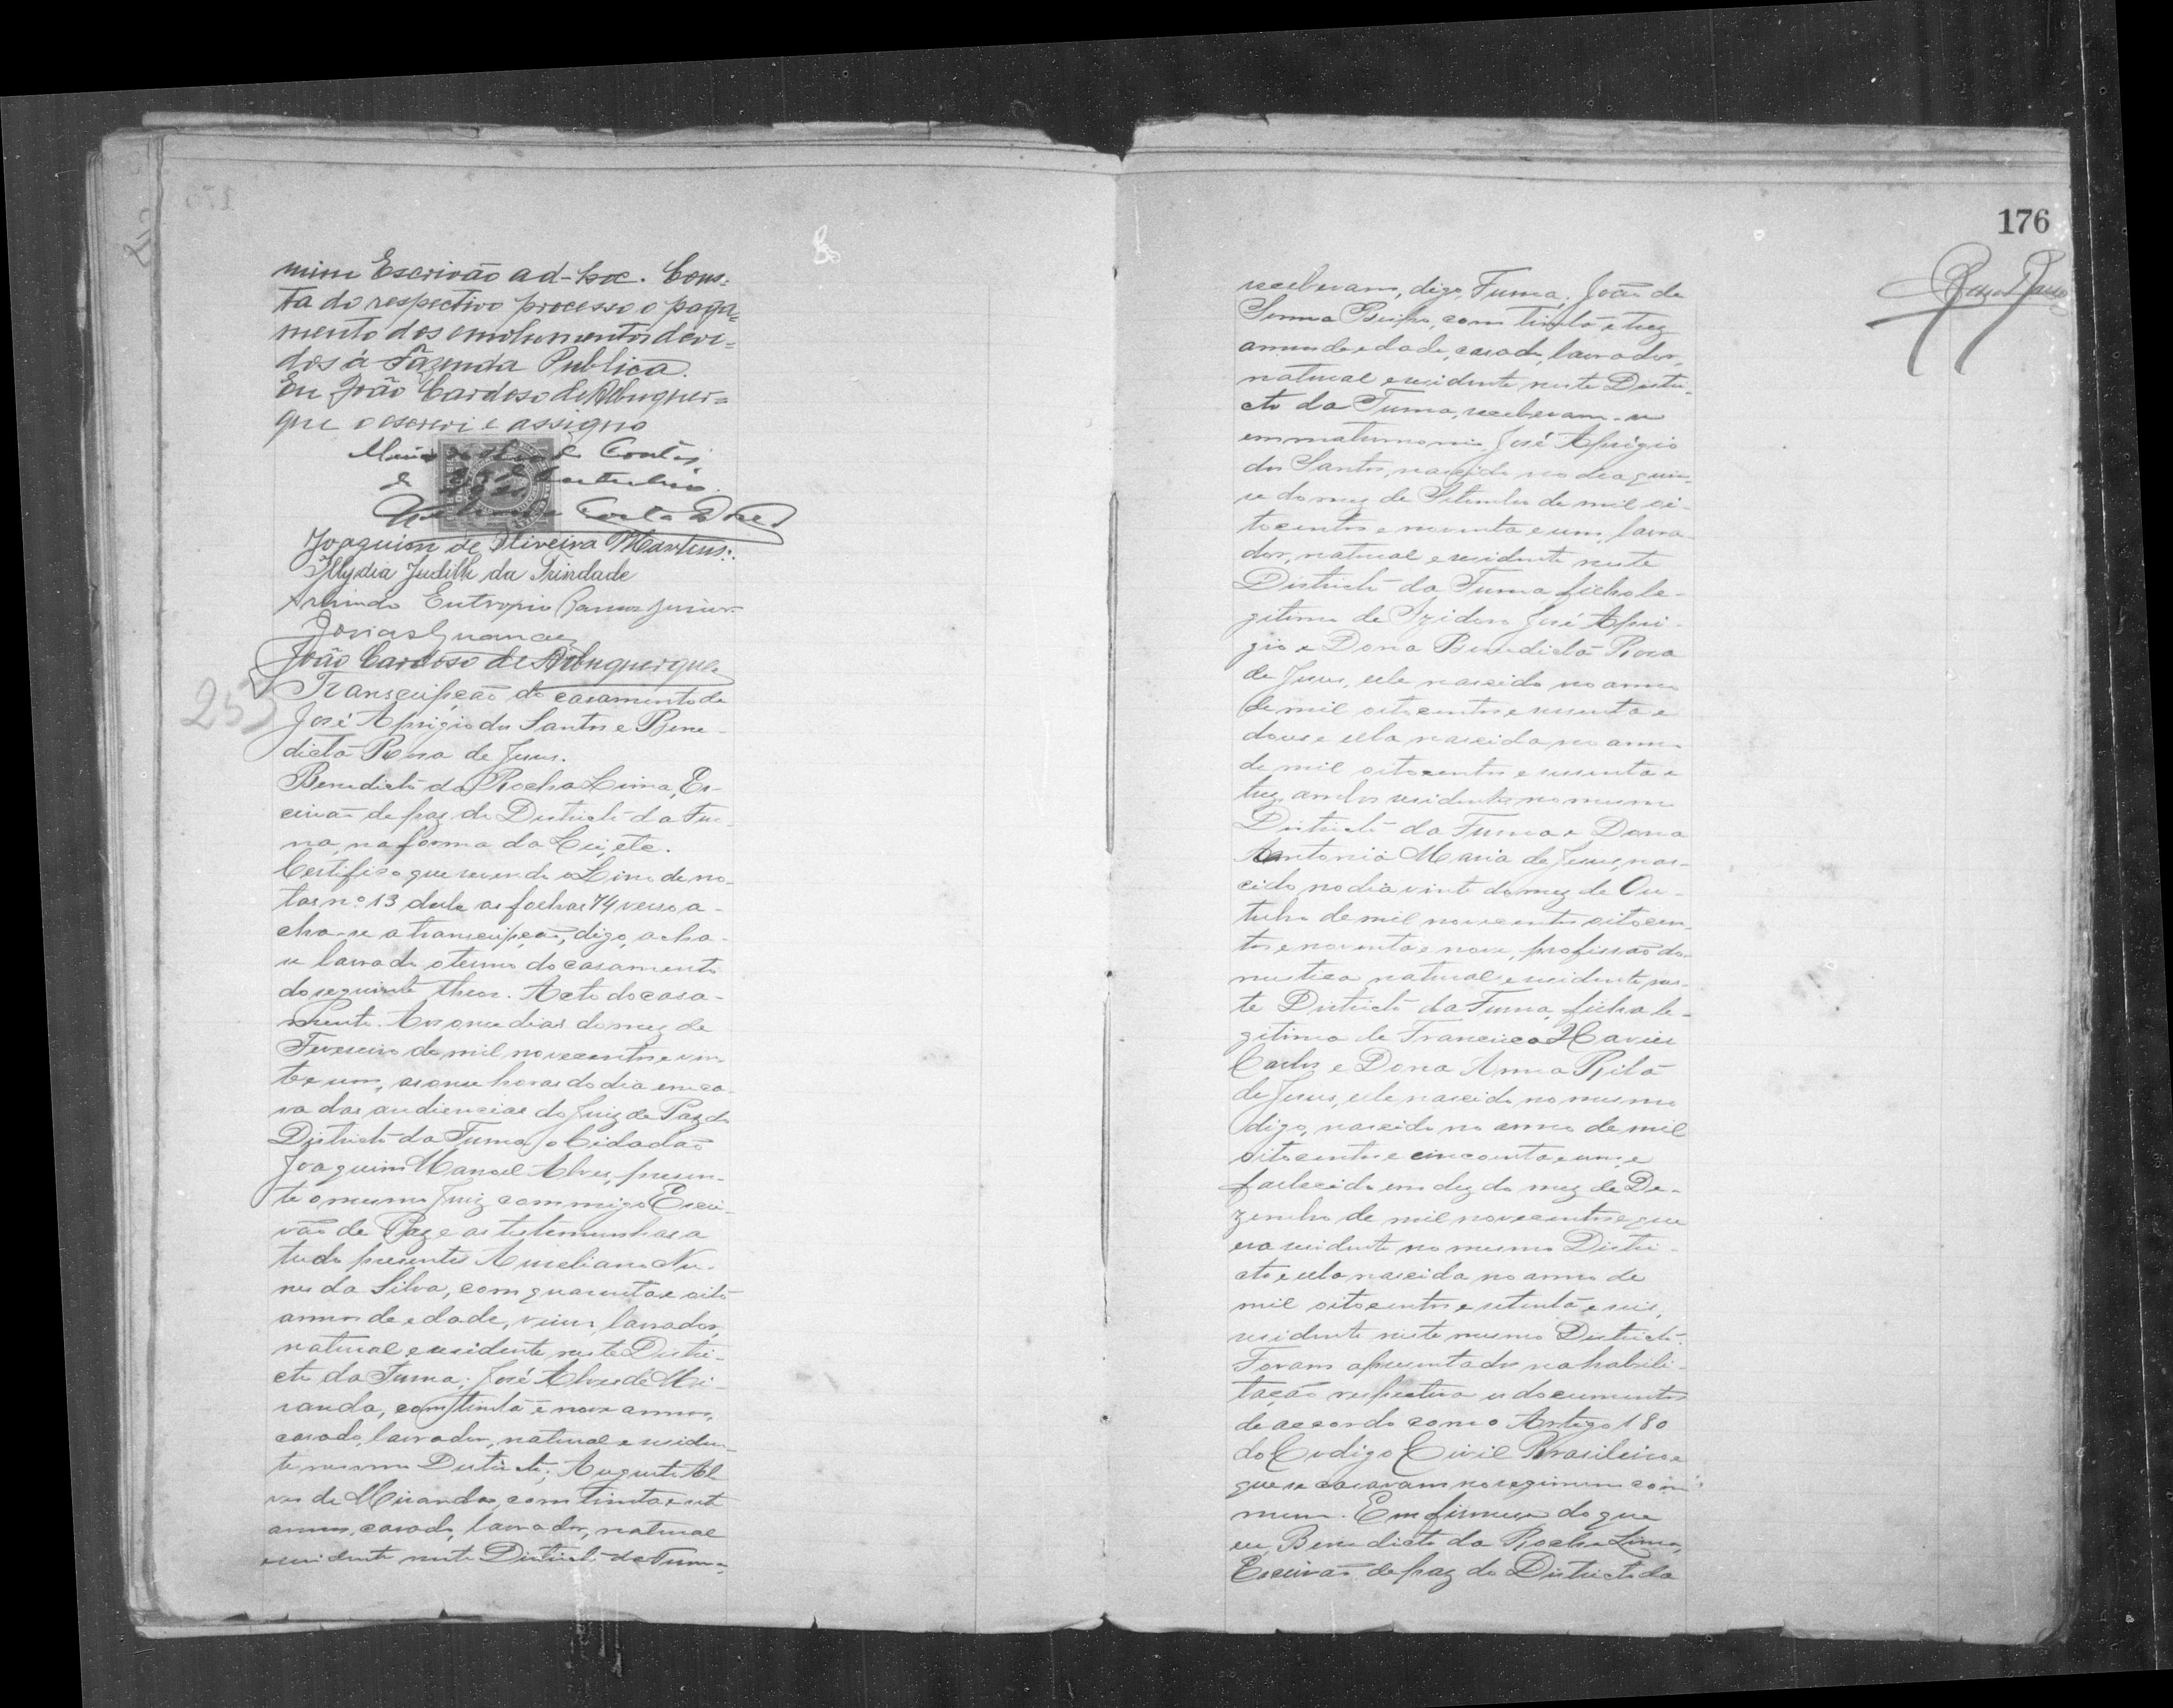 mim Escrivão ad-hoc. Cons-
ta do respectivo processo o paga-
mento dos emolumentos devi-
dos á Fazenda Publica.
Eu João Cardoso de Albuquer-
que o escrevi e assigno
de Contas,
de
Costa
Joaquim de Oliveira Martins.
Illydia Judith da Trindade
Arlindo Eutropio Ramos Junior
Josias Guanaes
João Cardoso de Albuquerque
253
Transcripção do casamento de
José Aprigio dos Santos e Bene-
dicta Rosa de Jesus.
Benedicto da Rocha Lima, Es-
crivão de paz do Districto da Fur-
na, na forma da Lei, etc.
Certifico que revendo o Livro de no-
tas nº 13 dele as folhas 74 verso a-
cha-se a transcripção, digo, acha-
se lavrado o termo do casamento
do seguinte theor. Acto do casa-
mento. Aos onse dias do mez de
Fevereiro de mil novecentos e vin-
te e um, as onse horas do dia em ca-
sa das audiencias do Juiz de Paz do
Districto da Furna, o Cidadão
Joaquim Manoel Alves, presen-
te o mesmo Juiz commigo Escri-
vão de Paz e as testemunhas a
tudo presentes Aureliano Nu-
nes da Silva, com quarenta e oito
annos de edade, viuvo, lavrador,
natural e residente neste Distri-
cto da Furna; José Alves de Mi-
randa, com trinta e nove annos,
casado, lavrador, natural e residen-
te mesmo Districto; Augusto Al-
ves de Miranda, com trinta e sete
annos, casado, lavrador, natural
e residente neste Districto da Furna,
176
receberam, digo, Furna; João de
Senna com trinta e trez
annos de edade, casado, lavrador,
natural e residente neste Distri-
cto da Furna, receberam-se
em matrimonio José Aprigio
dos Santos, nascido no dia quin-
se do mez de Setembro de mil oi-
tocentos e noventa e um, lavra-
dor, natural e residente neste
Districto da Furna, filho le-
gitimo de Izidoro José Apri-
gio e Dona Benedicta Rosa
de Jesus, elle nascido no anno
de mil oitocentos e sessenta e
dous e ella nascida no anno
de mil oitocentos e sessenta e
trez, ambos residentes no mesmo
Districto da Furna e Dona
Antonia Maria de Jesus, nas-
cida no dia vinte do mez de Ou-
tubro de mil novecentos oitocen-
tos e noventa e nove, profissão do-
mestica natural e residente nes-
te Districto da Furna, filha le-
gitima de Francisco Xavier
Carlos e Dona Anna Rita
de Jesus, elle nascido no mesmo
digo, nascido no anno de mil
oitocentos e cincoenta e um, e
fallecido em dez do mez de De-
zembro de mil novecentos e que
era residente no mesmo Distri-
cto e ella nascida no anno de
mil oitocentos e setenta e seis,
residente neste mesmo Districto.
Foram apresentados na habili-
tação respectiva os documentos
de accordo com o Artigo 180
do Codigo Civil Brasileiro e
que se casavam no regimen com-
mum. Em firmesa do que
eu, Benedicto da Rocha Lima,
Escrivão de paz do Districto da